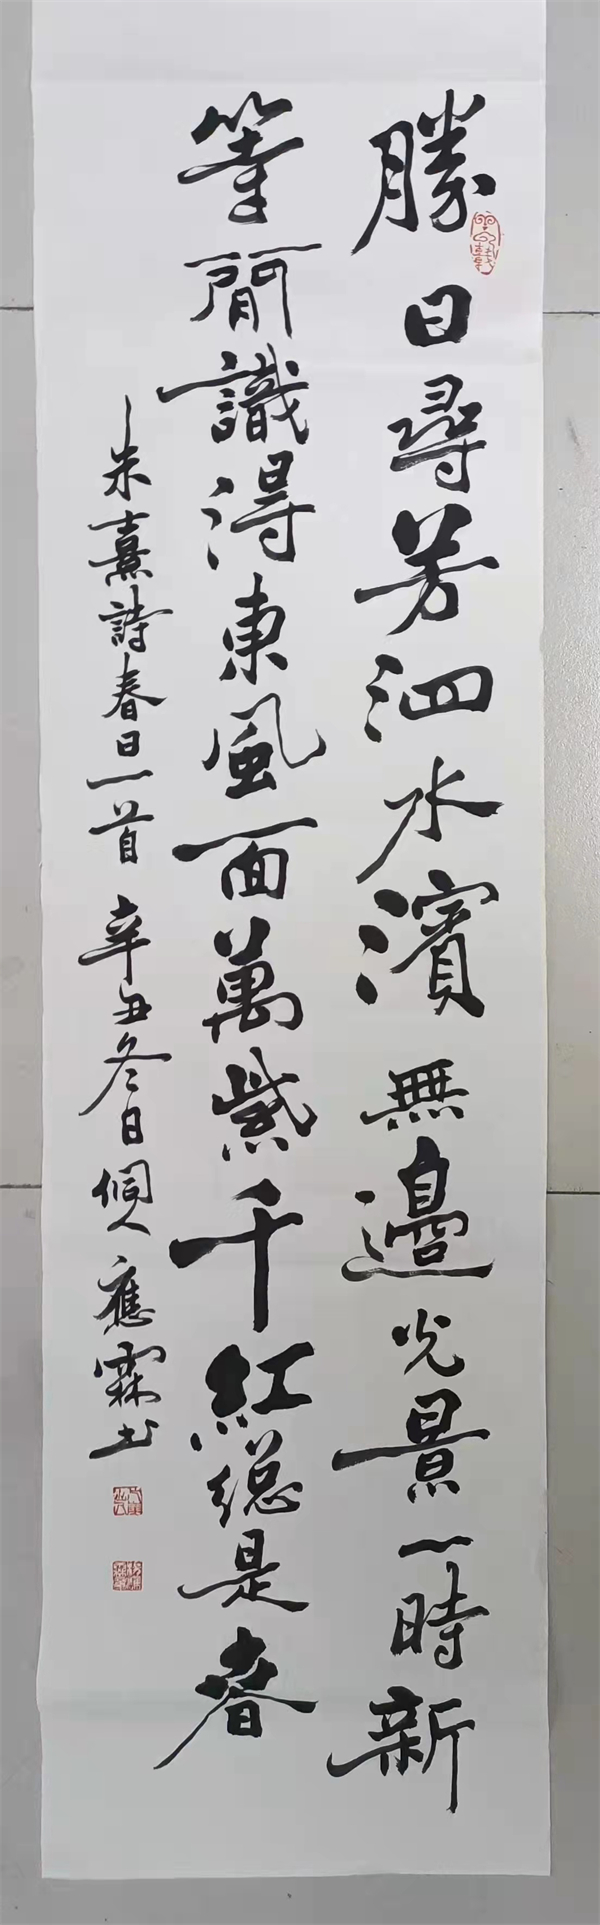 勝日尋芳泗水濱無邊光景一時新
等閒識得東風面萬紫千紅総是春
朱熹詩春日一首 辛丑冬日 個人應霖书